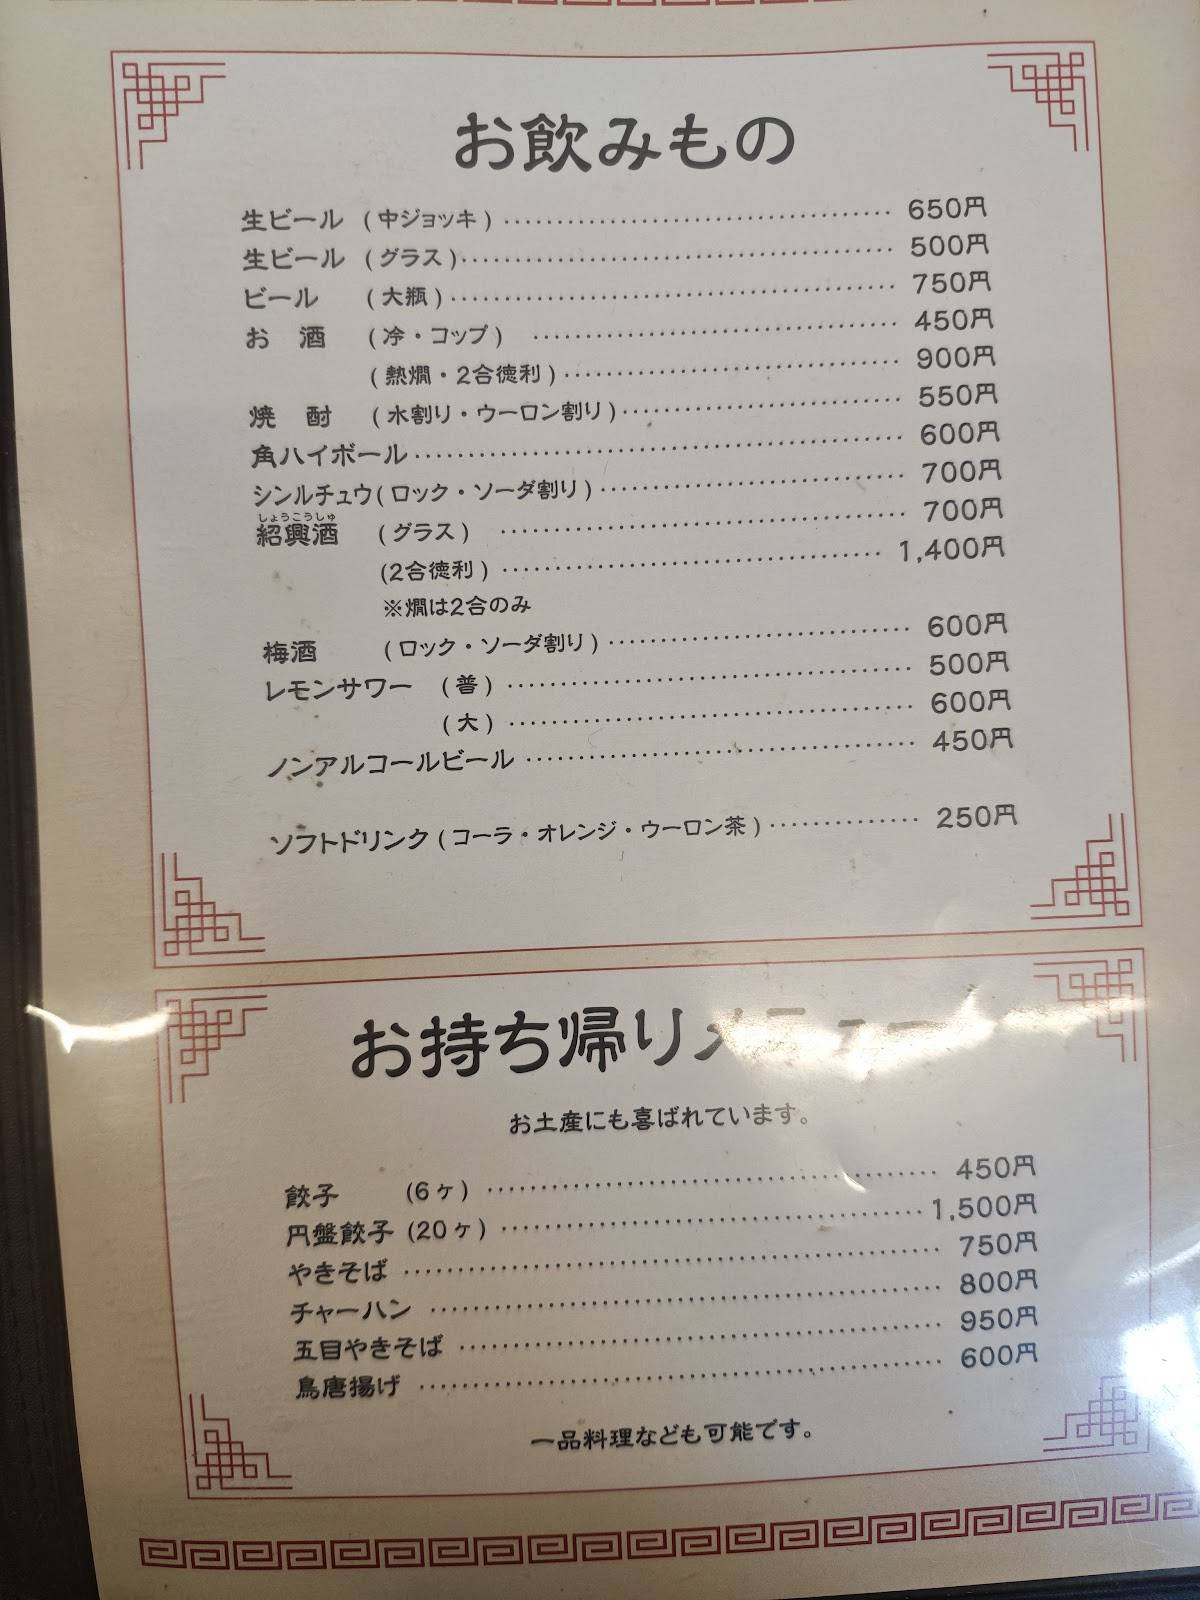 お飲みもの
生ビール (中ジョッキ) 650円
生ビール (グラス) 500円
ビール (大瓶) 750円
お 酒 (冷・コップ) 450円
(熱燗・2合徳利) 900円
焼 酎 (水割り・ウーロン割り) 550円
角ハイボール 600円
シンルチュウ(ロック・ソーダ割り) 700円
しょうこうしゅ
紹興酒 (グラス) 700円
(2合徳利) 1,400円
※燗は2合のみ
梅酒 (ロック・ソーダ割り) 600円
レモンサワー (普) 500円
(大) 600円
ノンアルコールビール 450円
ソフトドリンク(コーラ・オレンジ・ウーロン茶) 250円
お持ち帰りメニュー
お土産にも喜ばれています。
餃子 (6ヶ) 450円
円盤餃子 (20ヶ) 1,500円
やきそば 750円
チャーハン 800円
五目やきそば 950円
鳥唐揚げ 600円
一品料理なども可能です。